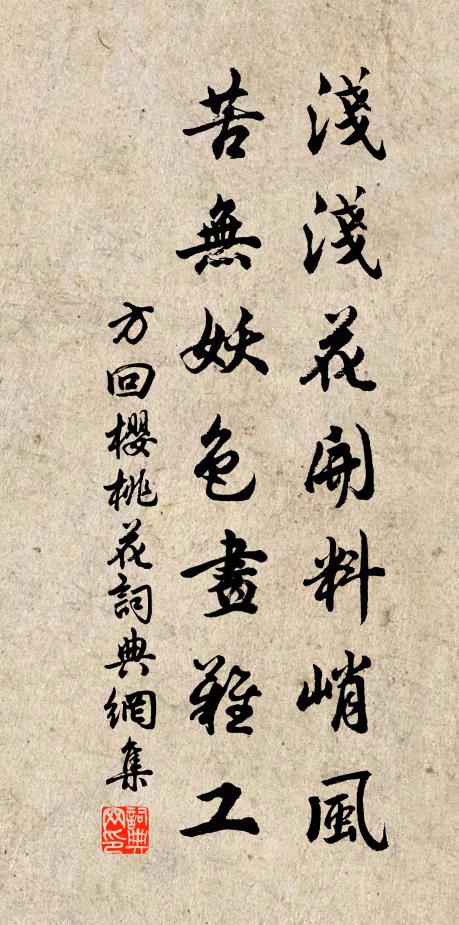 淺淺花開料峭風
苦無妖色畫難工
方回櫻桃花詞典網集
詞典網印